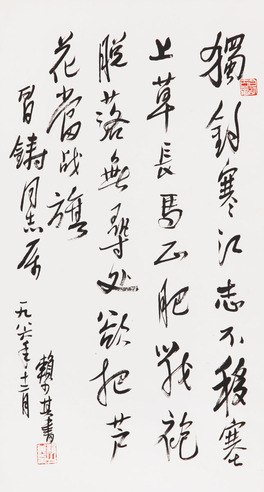 獨釣寒江志不移塞
上草長馬正肥战袍
脱落無尋处欲把芦
花當战旗
冒鑄同志屬
一九八六年十二月
賴少其書